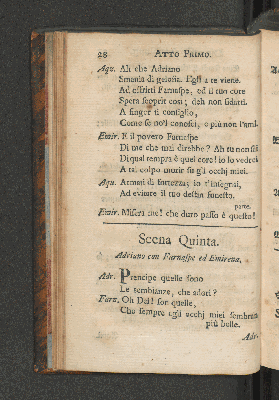 28 ATTO PRIMO.
Aqu. Ah che Adriano
Smania di gelosia. Egli a te viene.
Ad offrirti Farnaspe, ed il tuo core
Spera scoprir così; deh non fidarti.
A finger ti consiglio,
Come se no'l conosci, e più non l'ami.
Emir. E il povero Farnaspe
Di me che mai direbbe? Ah tu non sai
Di qual tempra è quel core! io lo vedrei
A tal colpo morir su gli occhj miei.
Aqu. Armati di fortezza; io t'insegnai,
Ad evitare il tuo destin funesto.
parte.
Emir. Misera me! che duro passo è questo!
Scena Quinta.
Adriano con Farnaspe ed Emirena.
Adr. Prencipe quelle sono
Le sembianze, che adori?
Farn. Oh Dei! son quelle,
Che sempre agli occhj miei sembran
più belle.
Adr.